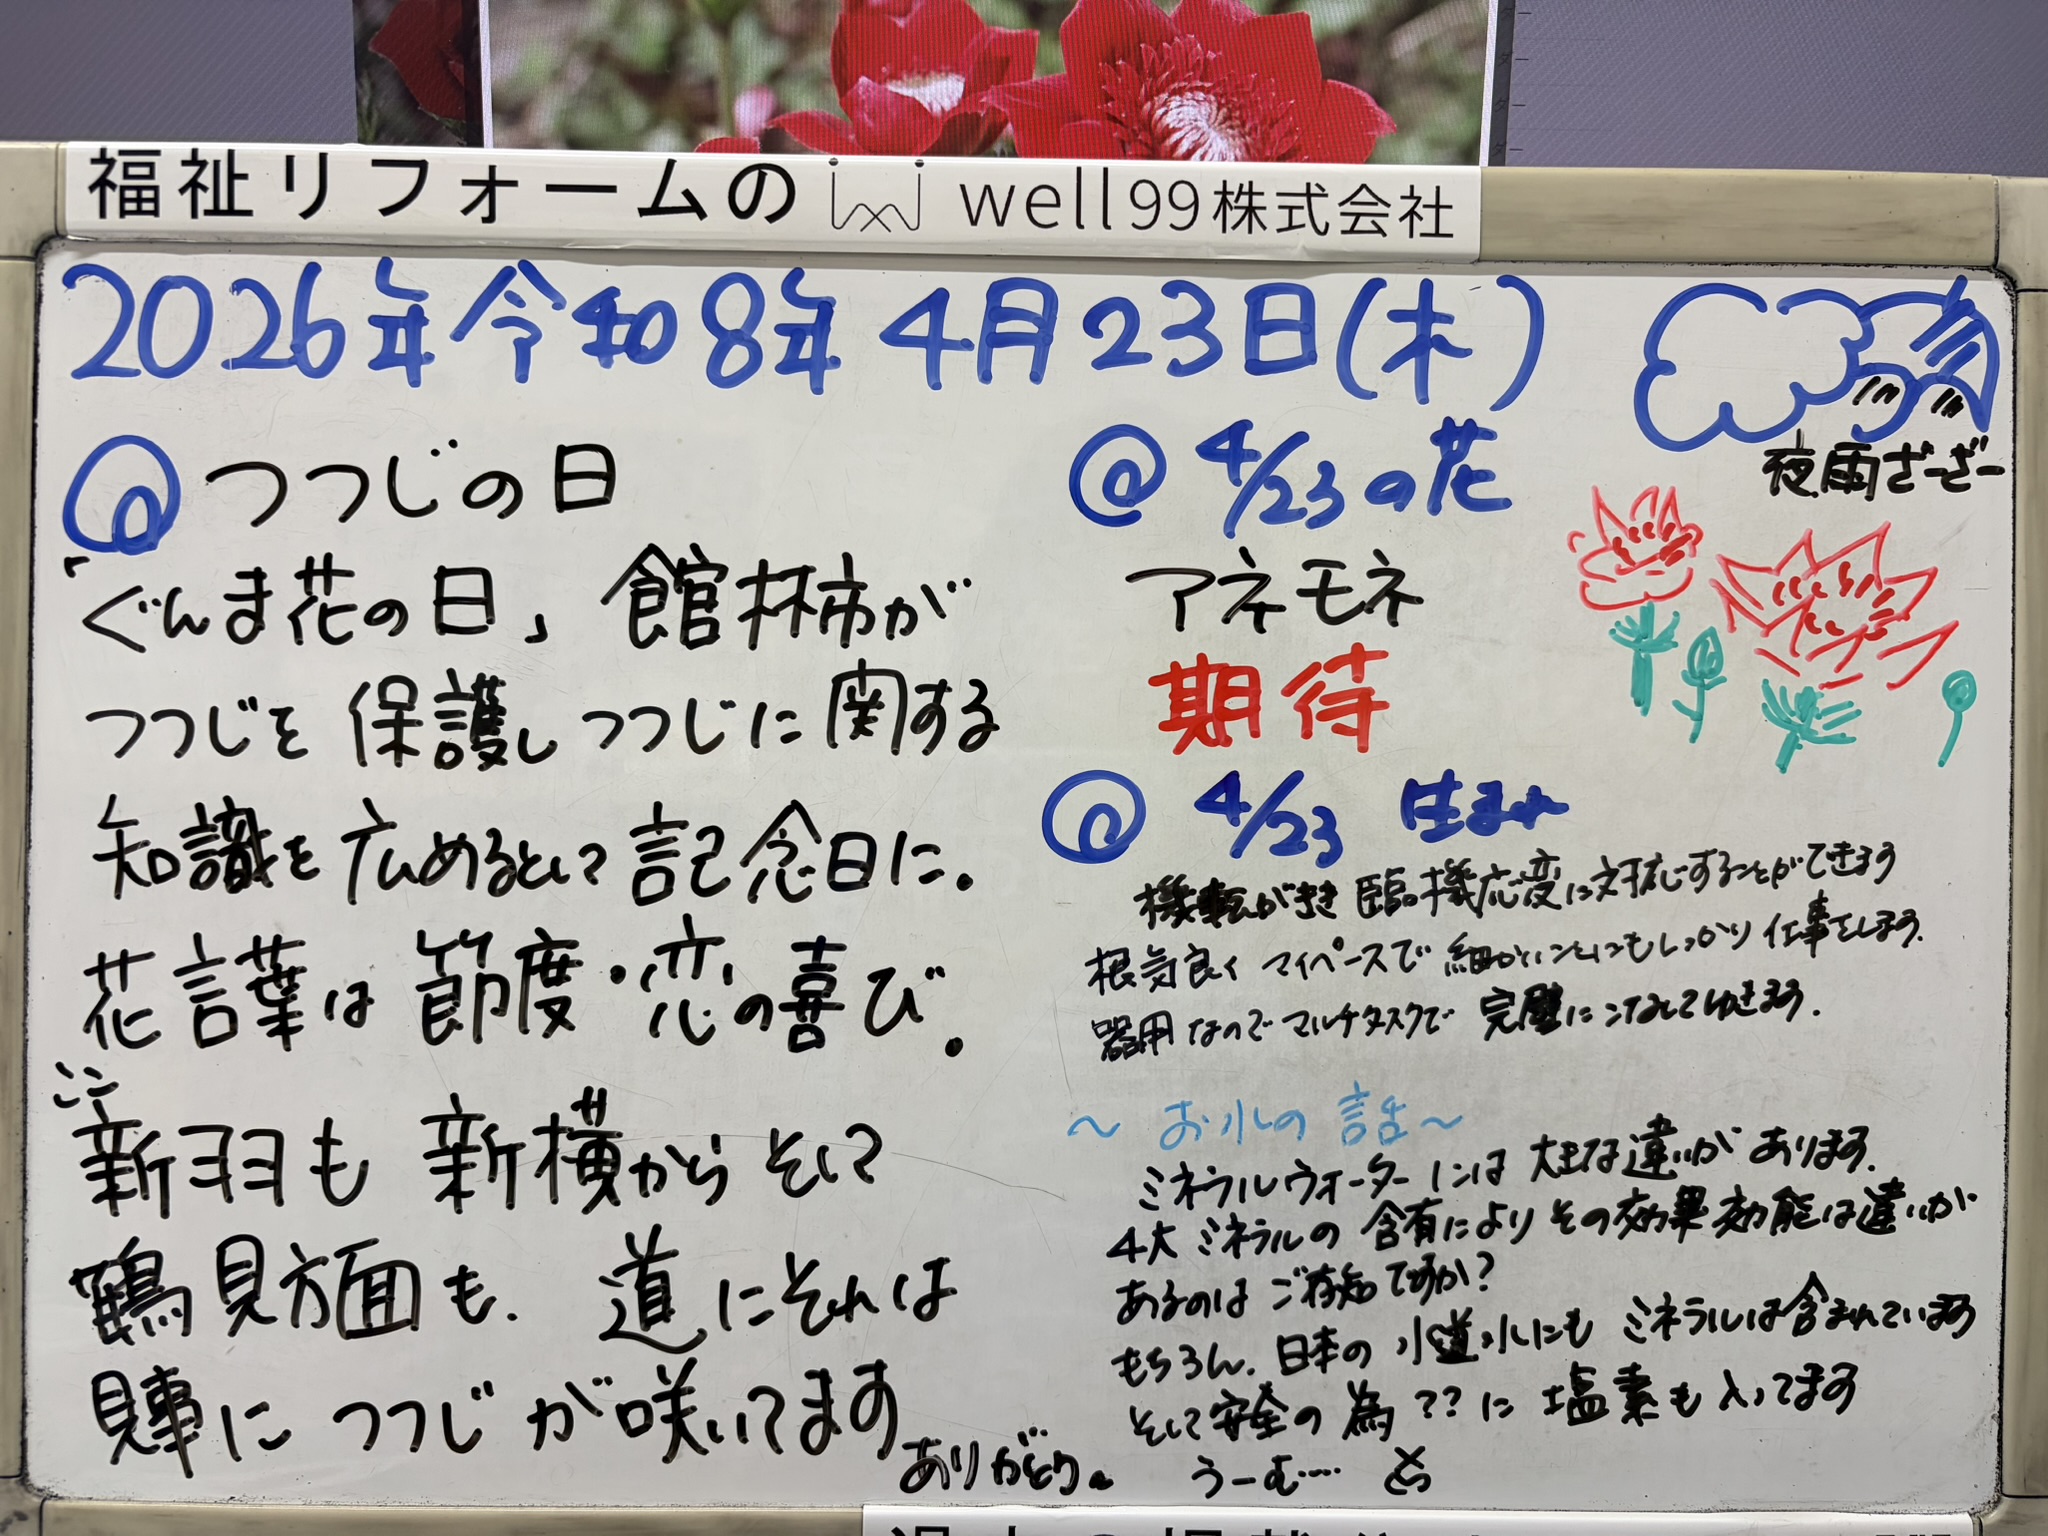 福祉リフォームの well99株式会社
2026年令和8年 4月23日(木)
夜雨ざーざー
つつじの日
「ぐんま花の日」館林市が
つつじを保護しつつじに関する
知識を広めるとして記念日に.
花言葉は節度・恋の喜び.
ここ
新羽も新横からそして
鶴見方面も. 道にそれは
見事につつじが咲いてます
ありがとう。
@ 4/23の花
アネモネ
期待
4/23 生まれ
機転がきき臨機応変に対応することができます
根気良くマイペースで細かいことにもしっかり仕事をします.
器用なのでマルチタスクで完璧にこなしてゆきます.
〜お水の話〜
ミネラルウォーターには大きな違いがあります.
4大ミネラルの含有によりその効果効能は違いが
あるのはご存知ですか?
もちろん.日本の水道水にもミネラルは含まれています
そして安全の為??に塩素も入ってます
うーむ……